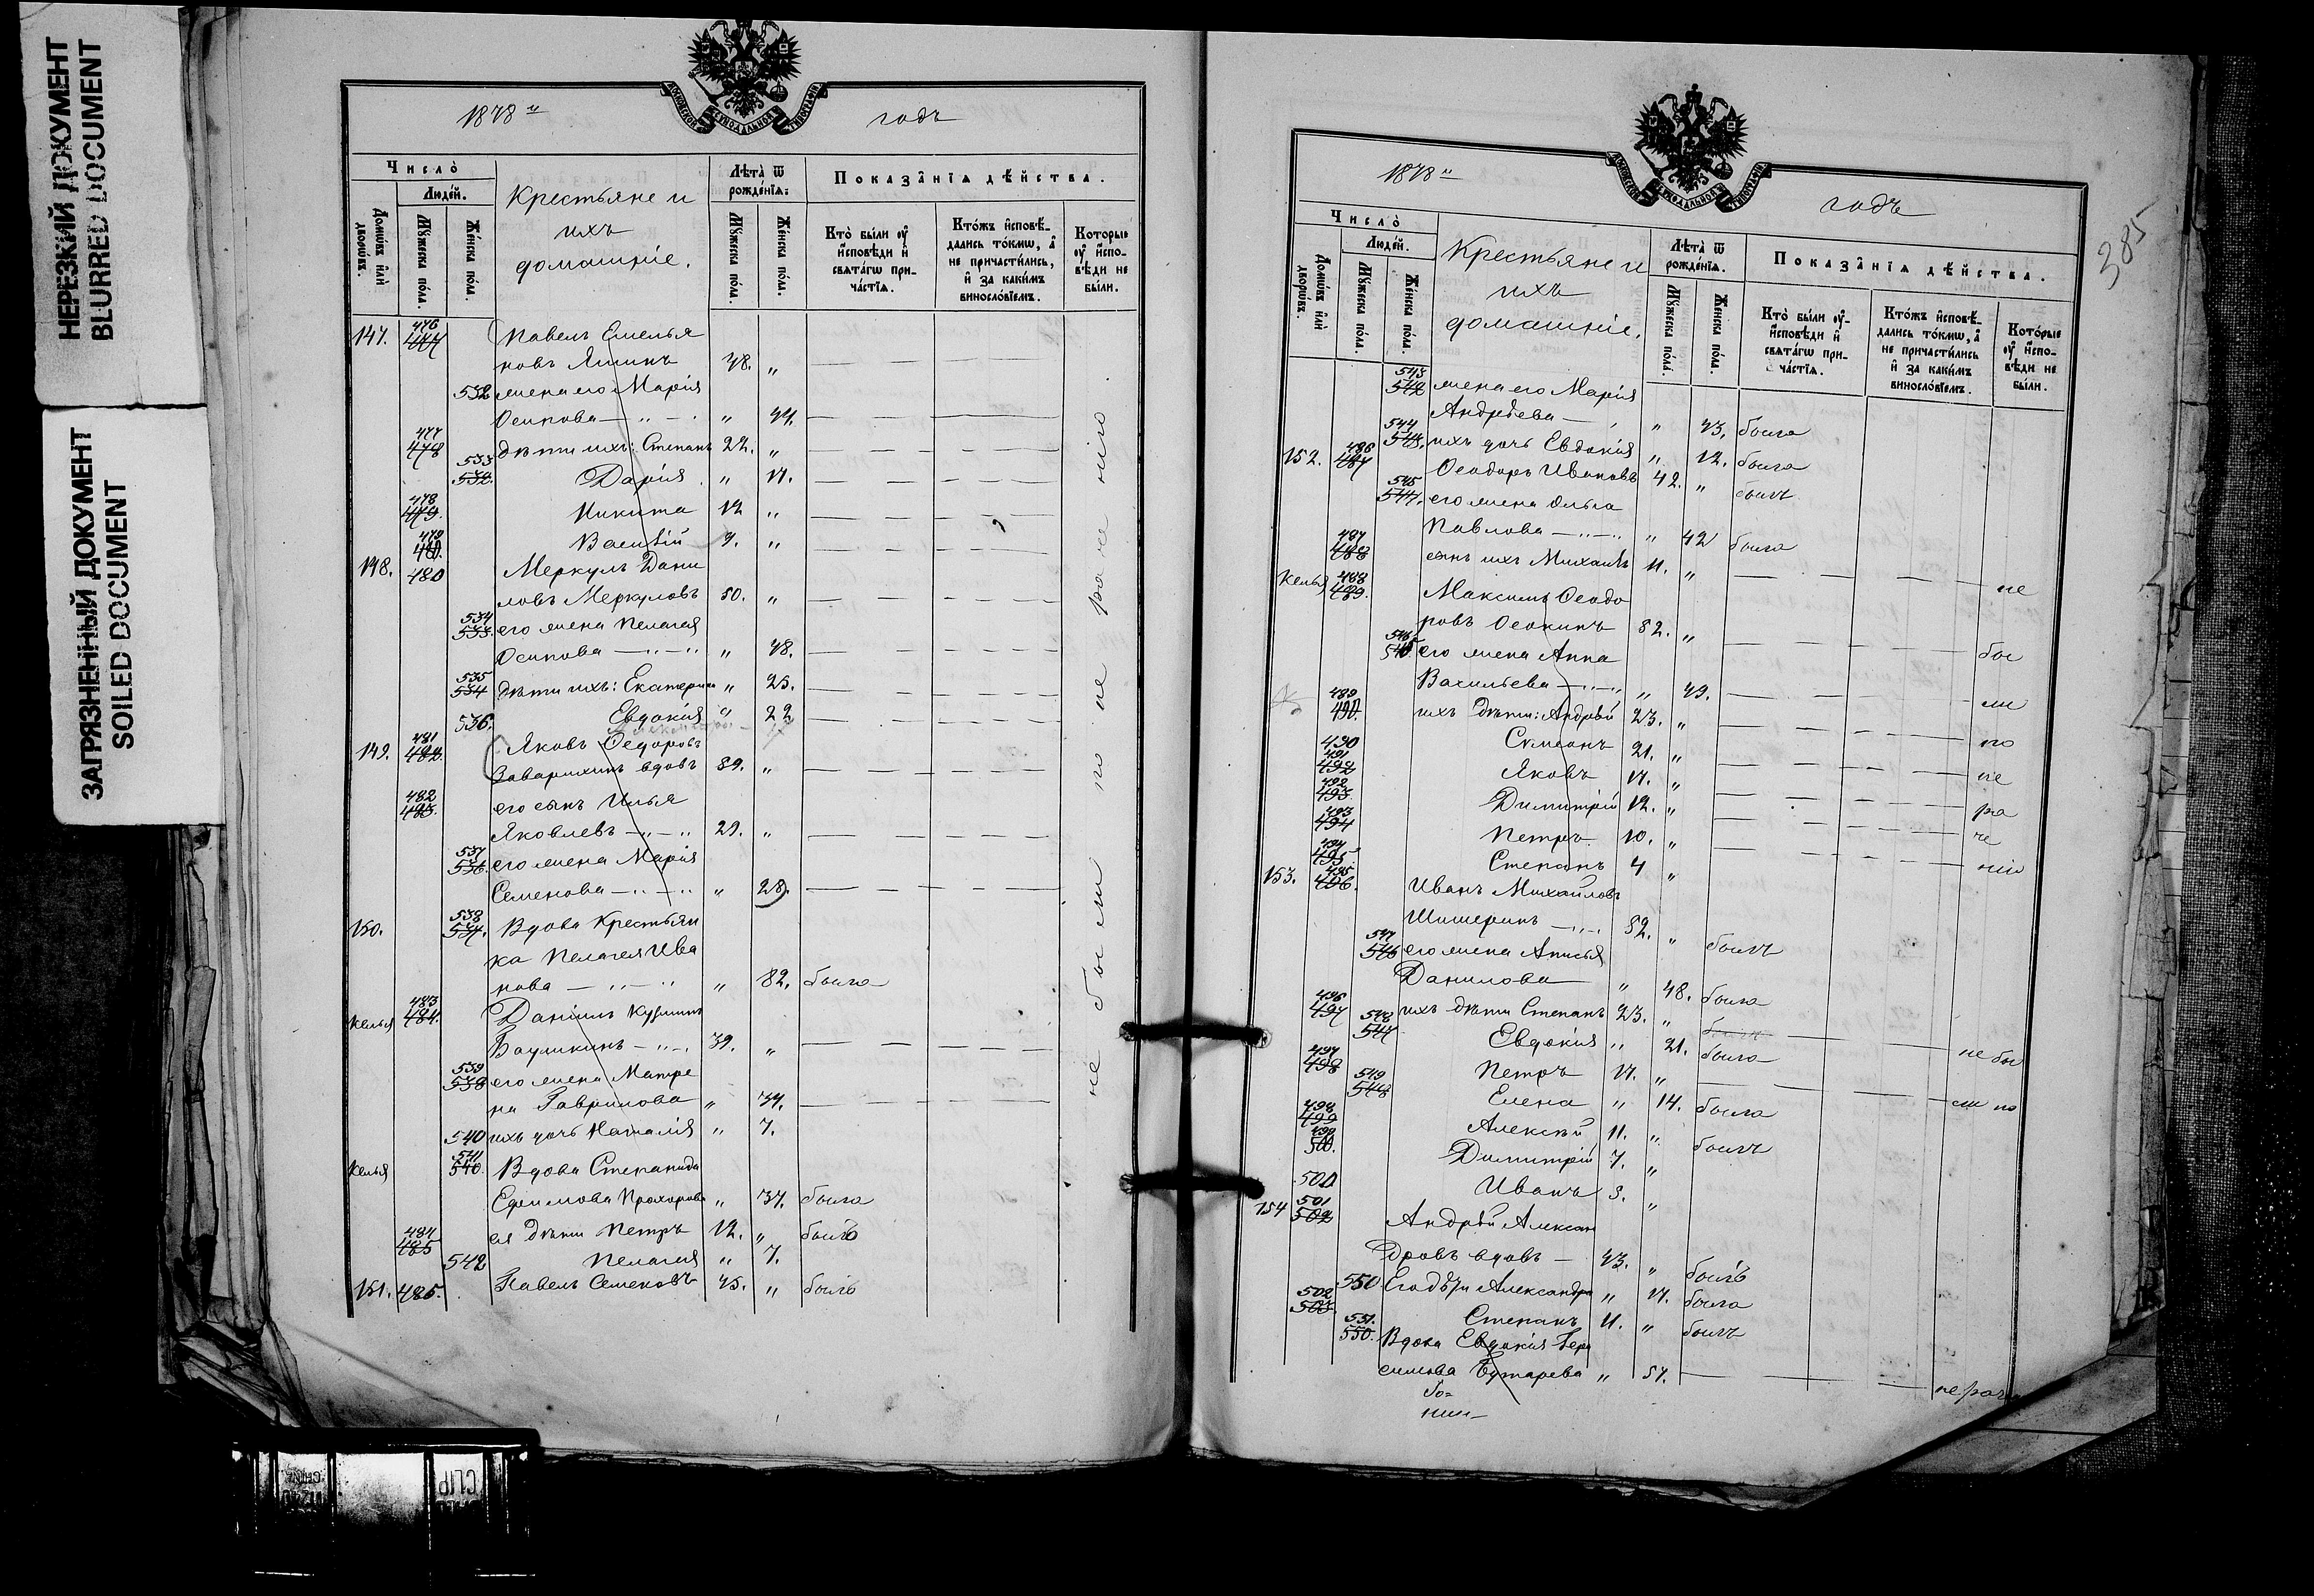 НЕРЕЗКИЙ ДОКУМЕНТ
BLURRED DOCUMENT
ЗАГРЯЗНЕННЫЙ ДОКУМЕНТ
SOILED DOCUMENT
МОСКОВСКОЙ СУНОДАЛЬНОЙ ТИПОГРАФІИ
1878 годъ
Число̀
Людей.
Домѡвъ илѝ дворѡвъ.
Мꙋжеска по́ла.
Же́нска по́ла.
Крестьяне и
ихъ
домашніе.
Лѣта̀ ѿ рожде́нїѧ:
Мꙋжеска по́ла.
Же́нска по́ла.
Показа̑нїѧ дѣ́йства.
Кто̀ бы́ли ᲂу҆ и҆сповѣ́ди и҆ свѧта́гѡ при-ча́стїѧ.
Кто́жъ и҆сповѣ́-дались то́кмѡ, а҆ не причасти́лись, и҆ за каки́мъ винословїемъ.
Кото́рые ᲂу҆ и҆спо-вѣ́ди не бы́ли.
147. 476 477 Павелъ Емелья
новъ Яшинъ 48. „
532 жена его Марія
Осипова — „ — „ 44.
477 478 дѣти ихъ: Степанъ 22. „
533 532. Дарія „ 17.
478 479. Никита 12 „
479 480. Василій 9. „
148. 480 Меркулъ Дани
ловъ Меркуловъ 50. „
534 533. его жена Пелагея
Осипова — „ — „ „ 48.
535 534 дѣти ихъ: Екатерина „ 25.
536. Евдокія „ 22
149. 481 482. Яковъ Ѳедоровъ
Заварихинъ вдовъ 89. „
482 483. его сынъ Илья
Яковлевъ — „ — „ 29. „
537 536. его жена Марія
Семенова — „ — „ „ 28.
150. 538 537. Вдова Крестьян
ка Пелагея Ива
нова — „ — „ „ 82. была
Келья 483 484. Даніилъ Кузминъ
39. „
539 538 его жена Матре
на Гаврилова „ 34.
540 ихъ дочь Наталія „ 7.
Келья 541 540. Вдова Степанида
Ефимова Прохорова „ 37. была
484 485 ея дѣти Петръ 12. „ былъ
542 Пелагея „ 7.
151. 485. Павелъ Семеновъ 45. „ былъ
не были по не раче нію
385
МОСКОВСКОЙ СУНОДАЛЬНОЙ ТИПОГРАФІИ
1878 годъ
Число̀
Людей.
Домѡвъ илѝ дворѡвъ.
Мꙋжеска по́ла.
Же́нска по́ла.
Крестьяне и
ихъ
домашніе.
Лѣта̀ ѿ рожде́нїѧ.
Мꙋжеска по́ла.
Же́нска по́ла.
Показа̑нїѧ дѣ́йства.
Кто̀ бы́ли ᲂу҆-и҆сповѣ́ди и҆ свѧта́гѡ при-ча́стїѧ.
Кто́жъ и҆сповѣ́-дались то́кмѡ, а҆ не причасти́лись и҆ за каки́мъ винословїемъ.
Кото́рые ᲂу҆ и҆спо-вѣ́ди не бы́ли.
543 542 жена его Марія
Андреева — „ 43. была
544 543. ихъ дочь Евдокія „ 12. была
152. 486 487 Ѳеодоръ Ивановъ 42. „ былъ
545 544. его жена Ольга
Павлова — „ — „ „ 42 была
487 488 сынъ ихъ Михаилъ 11. „ не
Келья 488 489. Максимъ Ѳеодо
ровъ Ѳеокинъ 52. „ бы
546 545 его жена Анна
Васильева — „ — „ „ 49. ли
489 490. ихъ дѣти: Андрей 23. „ по
490 Симеонъ 21. „ не
491 492 Яковъ 17. „ ра
492 493. Димитрій 12. „ че
493 494 Петръ 10. „ нію
494 495. Степанъ 4 „
153. 495 496. Иванъ Михайловъ
Шишеринъ — „ 52. „ былъ
547 546 его жена Анисья
Данилова „ 48. была
496 497 ихъ дѣти Степанъ 23. „ былъ не бы
548 547 Евдокія „ 21. была
497 498 Петръ 17. „ ли по
549 548 Елена „ 14. была
498 499 Алексѣй 11. „ былъ
499 500. Димитрій 7. „
500 Иванъ 5. „
154 501 502 Андрей Алексан
дровъ вдовъ — 43. „ былъ
550 Его дѣти Александра „ 17. была
502 503. Степанъ 11. „ былъ
551. 550. Вдова Евдокія Гера
симова Бутарева „ 57. не рач